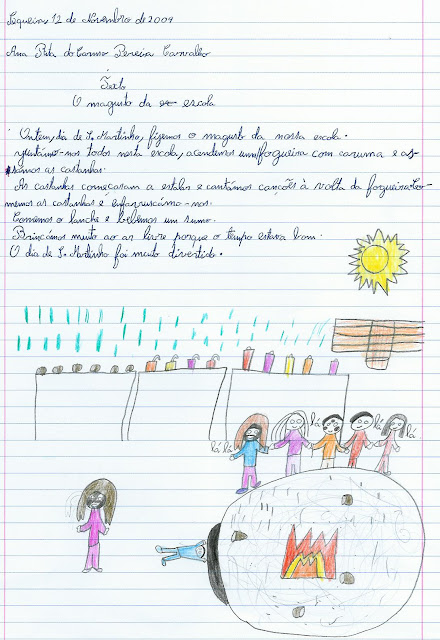 Sequeira, 12 de Novembro de 2009
Ana Rita do Carmo Pereira Carvalho
Texto
O magusto da es escola
Ontem, dia de S. Martinho, fizemos o magusto da nossa escola.
Juntámo-nos todos nesta escola, acendemos uma fogueira com caruma e as-
sámos as castanhas.
As castanhas começaram a estalar e cantámos canções à volta da fogueira. Co-
memos as castanhas e enfarruscámo-nos.
Comemos o lanche e bebemos um sumo.
Brincámos muito ao ar livre porque o tempo estava bom.
O dia de S. Martinho foi muito divertido.
lá lá lá lá lá